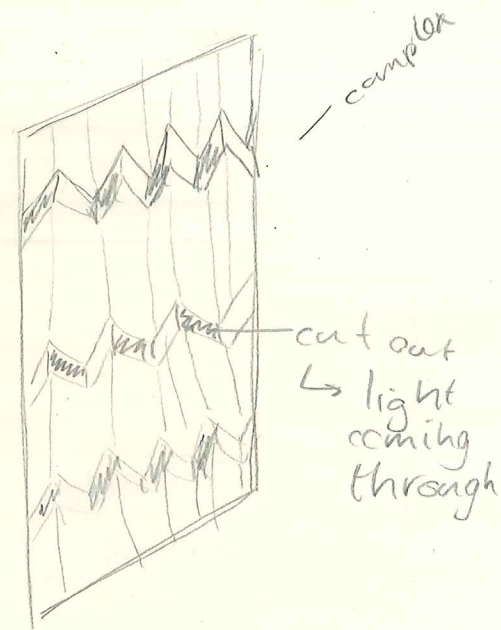 complex
cut out
↳ light
coming
through